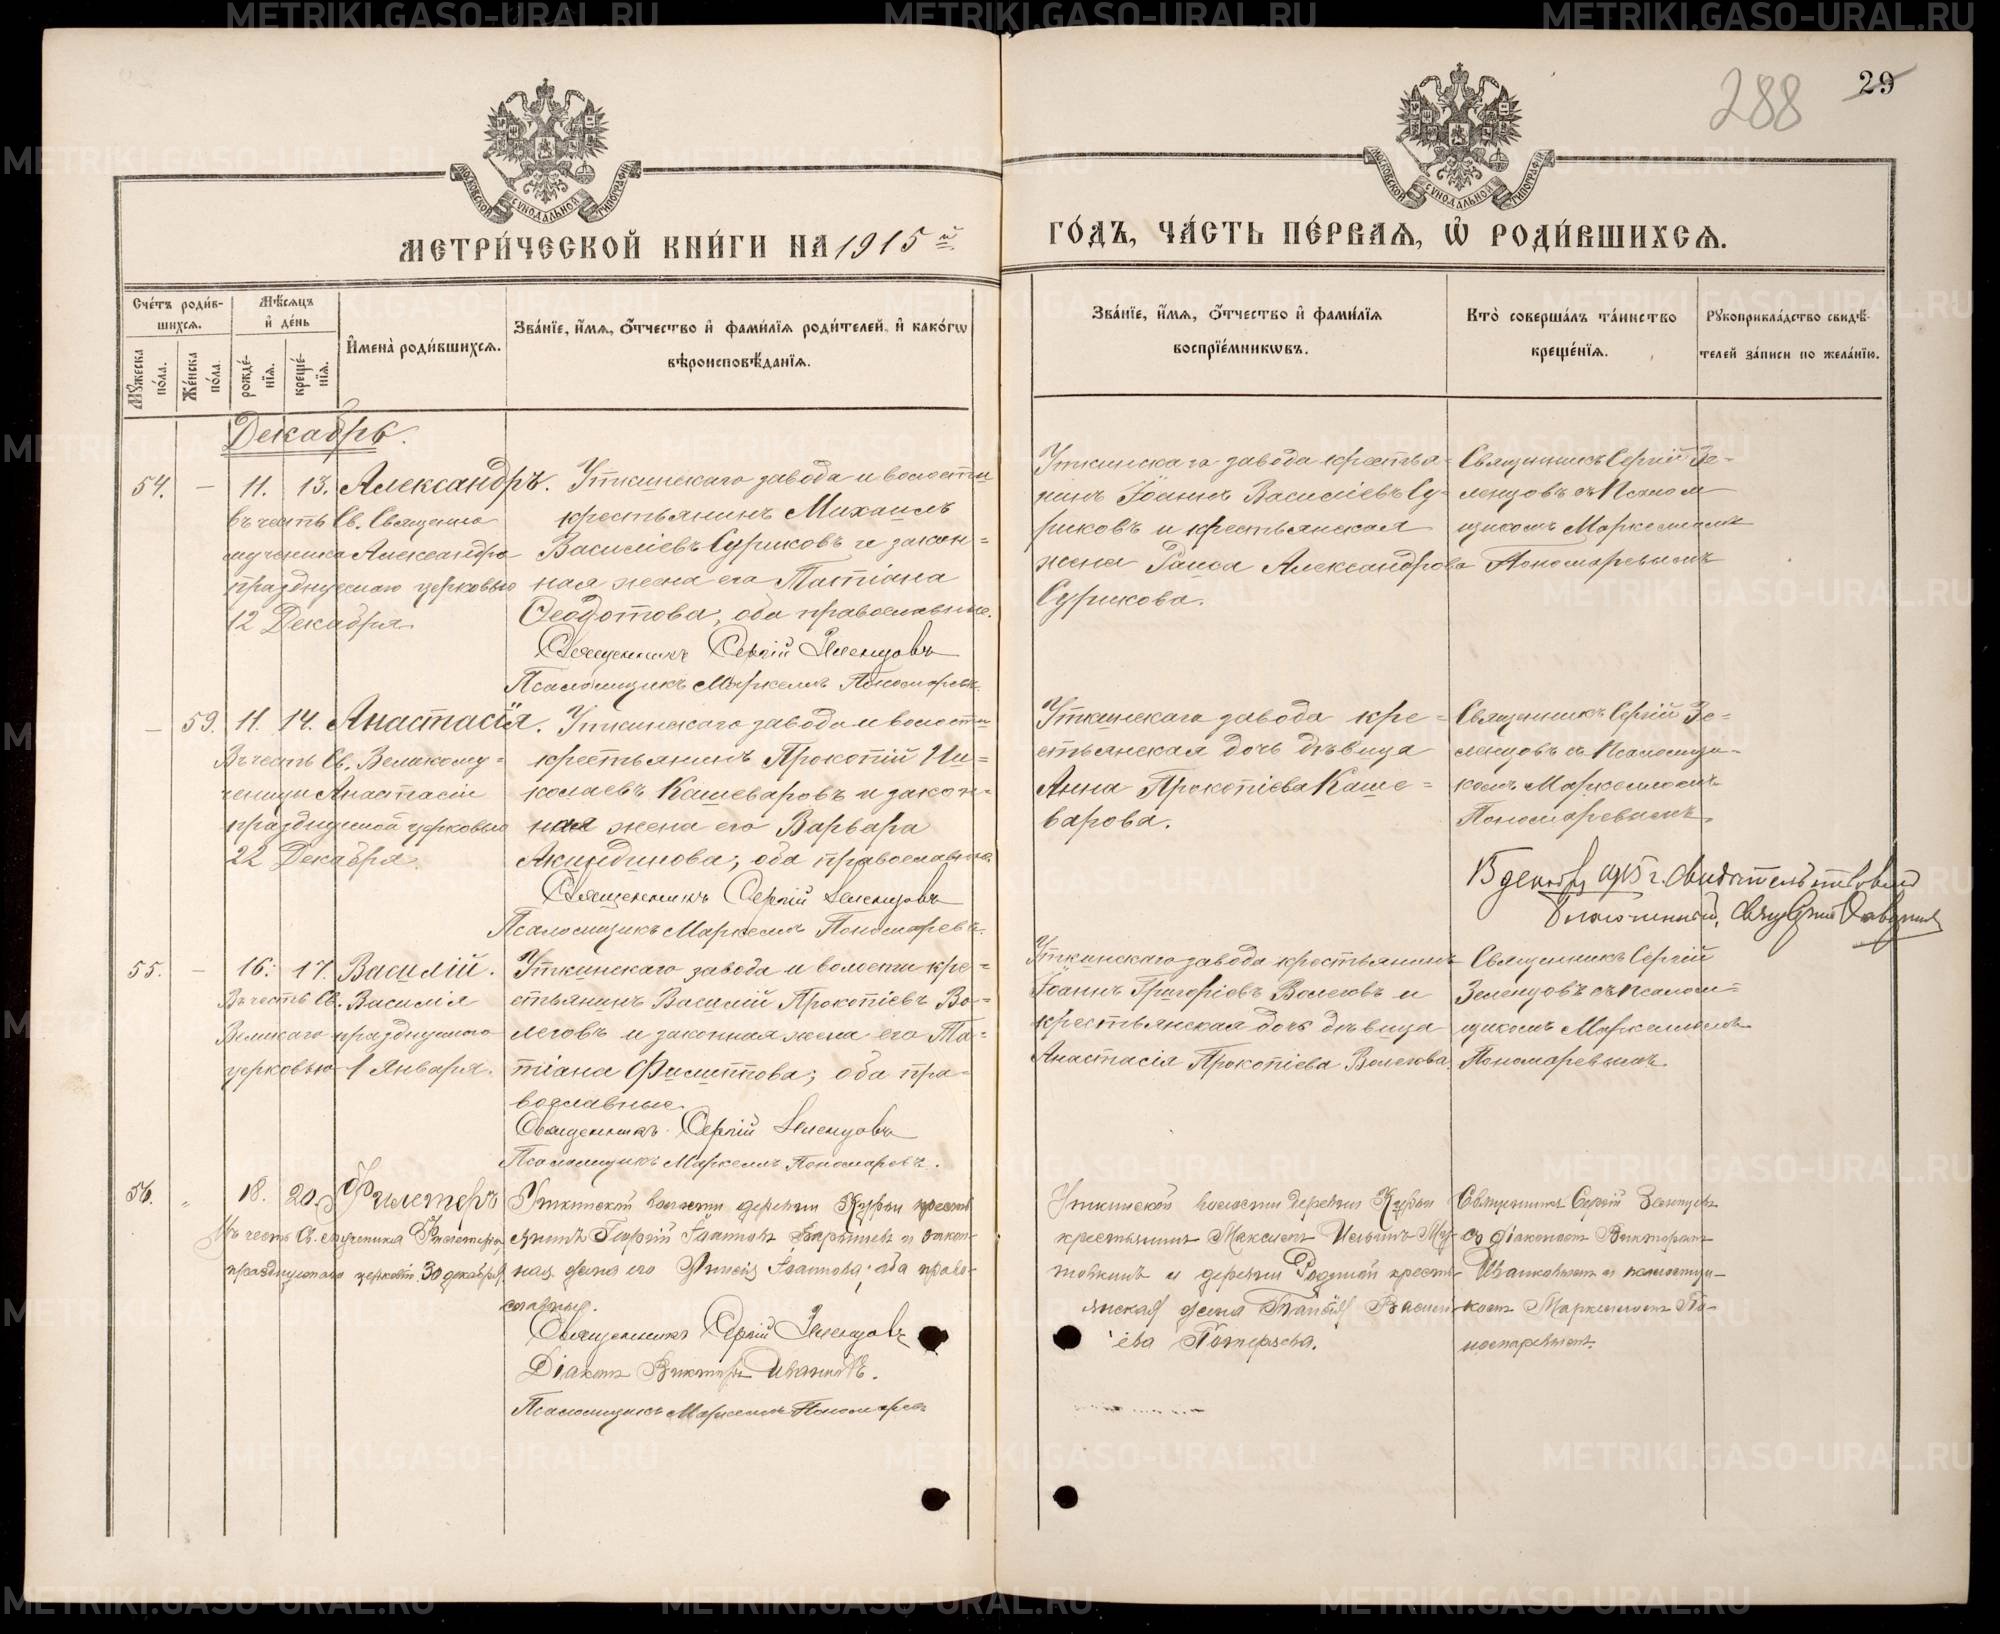 288
29
МОСКОВСКОЙ СѴНОДАЛЬНОЙ ТИПОГРАФІИ
МОСКОВСКОЙ СѴНОДАЛЬНОЙ ТИПОГРАФІИ
МЕТРИ́ЧЕСКОЙ КНИ́ГИ НА 1915й
ГО́ДЪ, ЧА́СТЬ ПЕ́РВАЯ, Ѡ҆ РОДИ́ВШИХСЯ.
Сче́тъ роди́в-
шихся.
Мꙋ́жеска по́ла.
Же́нска по́ла.
Мѣ́сяцъ
и҆ де́нь
рожде́-
нїя.
креще́-
нїя.
И҆мена̀ роди́вшихся.
Зва́нїе, и҆́мя, ѻ҆́тчество и҆ фами́лїя роди́телей, и҆ како́гѡ
вѣроисповѣ́данїя.
Зва́нїе, и҆́мя, ѻ҆́тчество и҆ фами́лїя
воспрїе́мникѡвъ.
Кто̀ соверша́лъ та́инство
креще́нїя.
Рꙋкоприкла́дство свидѣ́-
телей за́писи по жела́нїю.
Декабрь.
54. — 11. 13. Александръ.
въ честь Св. Священно
мученика Александра
празднуемаго церковью
12 Декабря.
Уткинскаго завода и волости
крестьянинъ Михаилъ
Василіевъ Суриковъ и закон-
ная жена его Татіана
Ѳеодотова, оба православные.
Священникъ Сергій Зеленцовъ
Псаломщикъ Маркеллъ Пономаревъ.
Уткинскаго завода крестья-
нинъ Іоаннъ Василіевъ Су-
риковъ и крестьянская
жена Раиса Александрова
Сурикова.
Священникъ Сергій Зе-
ленцовъ съ Псалом
щикомъ Маркелломъ
Пономаревымъ
— 59. 11. 14. Анастасія.
Въ честь Св. Великому-
ченицы Анастасіи
празднуемой церковью
22 Декабря.
Уткинскаго завода и волости
крестьянинъ Прокопій Ни-
колаевъ Кашеваровъ и закон-
ная жена его Варвара
Акиндинова; оба православные.
Священникъ Сергій Зеленцовъ
Псаломщикъ Маркеллъ Пономаревъ.
Уткинскаго завода кре-
стьянская дочь дѣвица
Анна Прокопіева Каше-
варова.
Священникъ Сергій Зе-
ленцовъ съ Псаломщи-
комъ Маркелломъ
Пономаревымъ.
15 декабр 1915 г. свидѣтельствовалъ
Благочинный, Свящ
55. — 16. 17. Василій.
Въ честь Св. Василія
Великаго празднуемаго
церковью 1 Января.
Уткинскаго завода и волости кре-
стьянинъ Василій Прокопіевъ Во-
леговъ и законная жена его Та-
тіана Филиппова; оба пра-
вославные.
Священникъ Сергій Зеленцовъ
Псаломщикъ Маркеллъ Пономаревъ.
Уткинскаго завода крестьянинъ
Іоаннъ Григоріевъ Волеговъ и
крестьянская дочь дѣвица
Анастасія Прокопіева Волегова.
Священникъ Сергій
Зеленцовъ съ Псалом-
щикомъ Маркелломъ
Пономаревымъ.
56. „ 18. 20. Филетеръ
Въ честь Св. мученика Филетера,
празднуемаго церков. 30 декабря.
Уткинской волости деревни Курьи кресть
янинъ Георгій Іоанновъ и закон-
ная жена его Іоаннова; оба право-
славные.
Священникъ Сергій Зеленцовъ
Діаконъ Викторъ Ивановъ.
Псаломщикъ Маркеллъ Пономаре-
Уткинской волости деревни Курьи
крестьянинъ Максимъ
и деревни кресть-
янская жена Васил
іева
Священникъ Сергій Зеленцовъ
съ діакономъ Викторомъ
и псаломщи-
комъ Маркелломъ По-
номаревымъ.